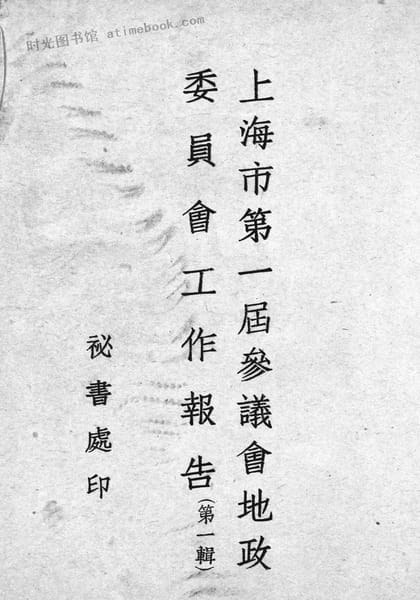 时光图书馆 atimebook.com
上海市第一屆參議會地政
委員會工作報告(第一輯)
祕書處印